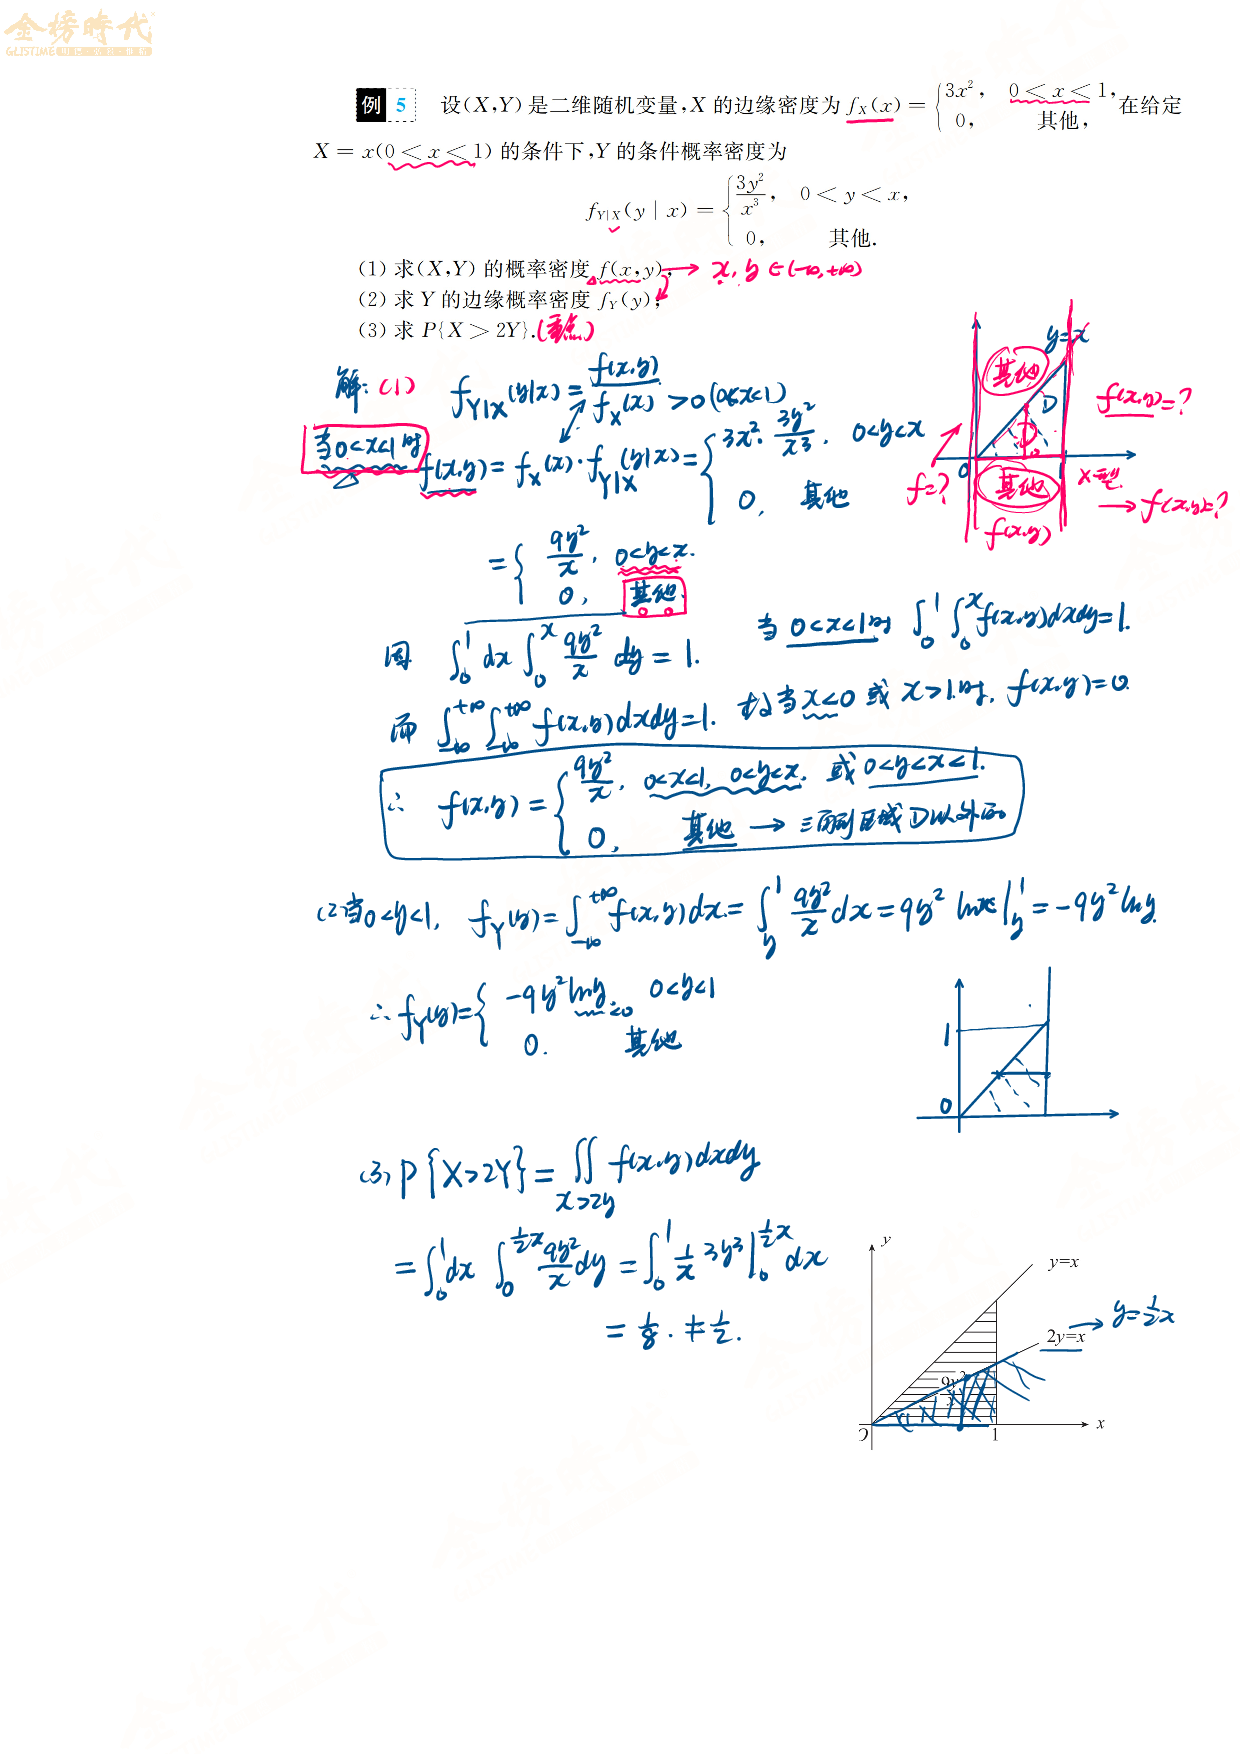 金榜時代
GLISTIME
例 5 设(X,Y)是二维随机变量,X 的边缘密度为 f_X(x) = { 3x², 0<x<1, 0, 其他, 在给定
X = x(0<x<1) 的条件下,Y 的条件概率密度为
f_{Y|X}(y|x) = { 3y²/x³, 0<y<x, 0, 其他.
(1) 求(X,Y) 的概率密度 f(x,y); → x, y ∈(-∞,+∞)
(2) 求 Y 的边缘概率密度 f_Y(y);
(3) 求 P{X > 2Y}. (重点)
解: (1) f_{Y|X}(y|x) = f(x,y)/f_X(x) >0 (0<x<1)
当0<x<1时 f(x,y) = f_X(x)·f_{Y|X}(y|x) = { 3x²·3y²/x³, 0<y<x 0, 其他
= { 9y²/x, 0<y<x. 0, 其他.
y=x
其他
D
D
f(x,y)=?
f=?
0
1
其他
x型
→ f(x,y)=?
f(x,y)
因 ∫₀¹dx ∫₀ˣ 9y²/x dy = 1. 当 0<x<1时 ∫₀¹ ∫₀ˣ f(x,y)dxdy=1.
而 ∫_{-∞}^{+∞} ∫_{-∞}^{+∞} f(x,y)dxdy=1. 故当x<0 或 x>1时, f(x,y)=0.
∴ f(x,y) = { 9y²/x, 0<x<1, 0<y<x. 或 0<y<x<1. 0, 其他 → 三角形区域D以外的
(2)当0<y<1, f_Y(y) = ∫_{-∞}^{+∞} f(x,y)dx = ∫_y^1 9y²/x dx = 9y² lnx |_y^1 = -9y² lny.
∴ f_Y(y)= { -9y² lny <0, 0<y<1 0. 其他
1
0
(3) P{X>2Y} = ∬_{x>2y} f(x,y)dxdy
= ∫₀¹dx ∫₀^{½x} 9y²/x dy = ∫₀¹ 1/x 3y³ |₀^{½x} dx
= 1/8. ≠ 1/2.
y
y=x
2y=x → y=½x
O
1
x